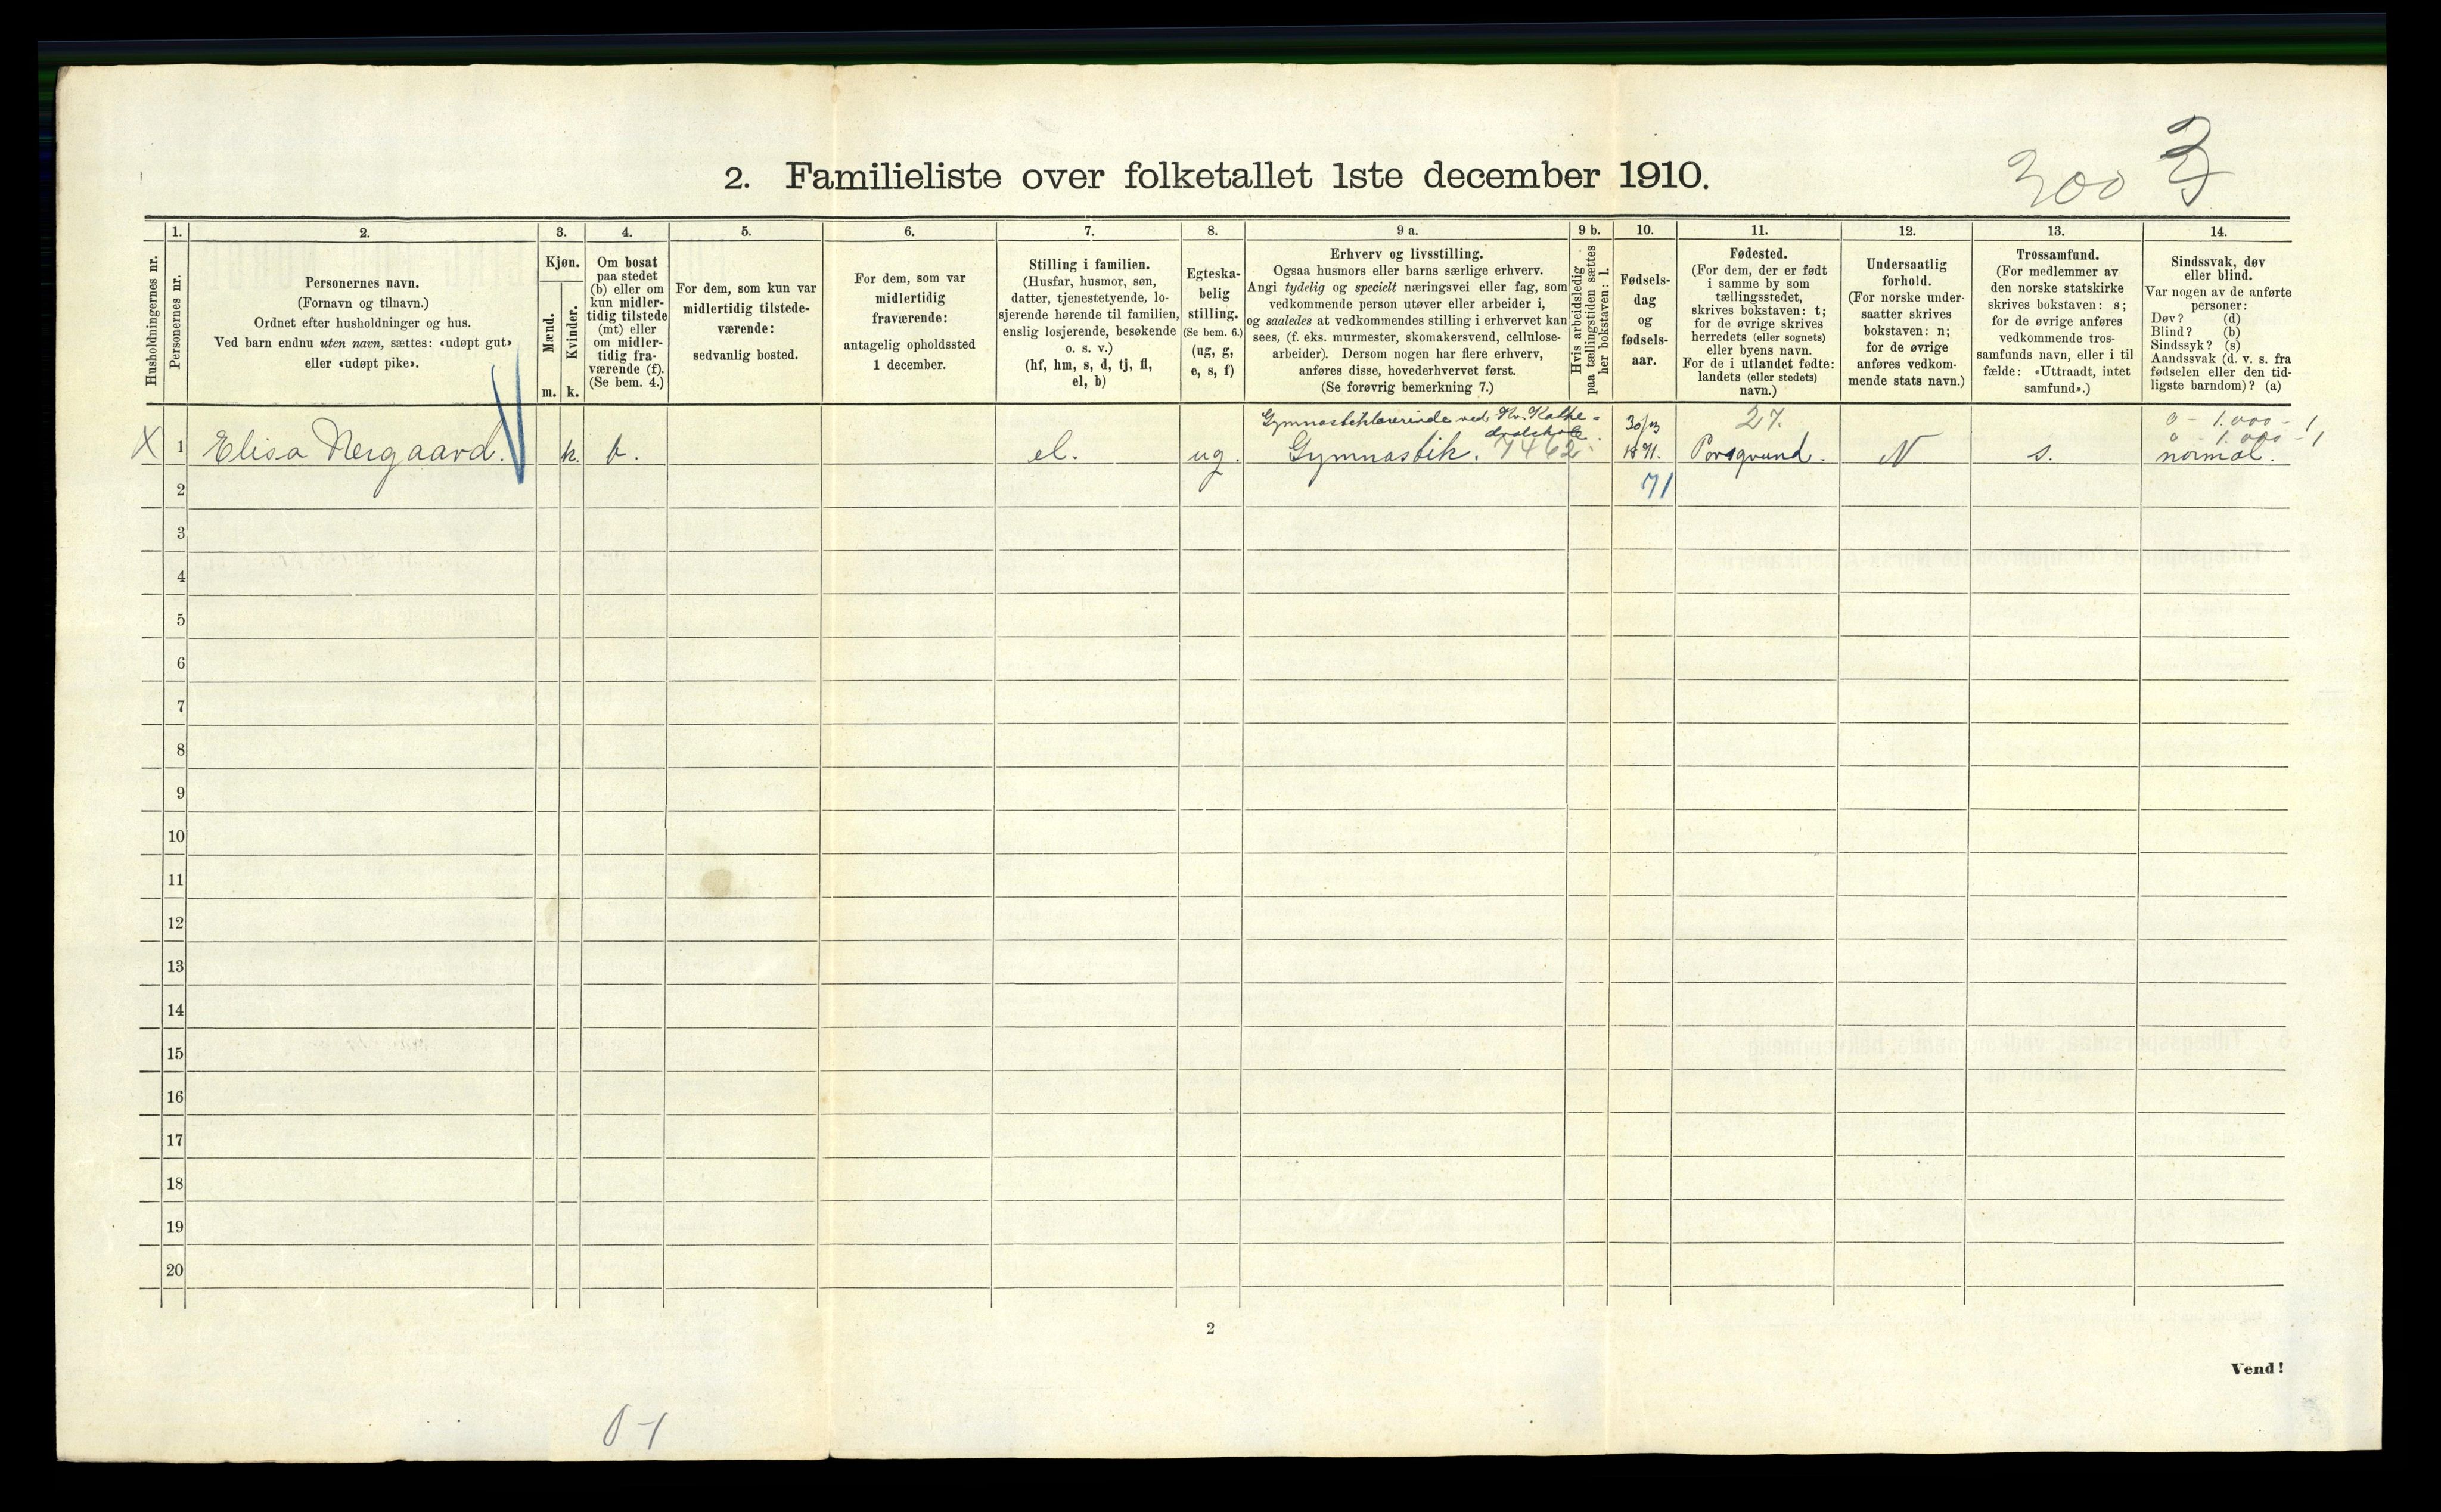 300 3
2. Familieliste over folketallet 1ste december 1910.
Husholdningernes nr.
1.
Personernes nr.
2.
Personernes navn.
(Fornavn og tilnavn.)
Ordnet efter husholdninger og hus.
Ved barn endnu uten navn, sættes: «udøpt gut»
eller «udøpt pike».
3.
Kjøn.
Mænd.
Kvinder.
m. k.
4.
Om bosat
paa stedet
(b) eller om
kun midler-
tidig tilstede
(mt) eller
om midler-
tidig fra-
værende (f).
(Se bem. 4.)
5.
For dem, som kun var
midlertidig tilstede-
værende:
sedvanlig bosted.
6.
For dem, som var
midlertidig
fraværende:
antagelig opholdssted
1 december.
7.
Stilling i familien.
(Husfar, husmor, søn,
datter, tjenestetyende, lo-
sjerende hørende til familien,
enslig losjerende, besøkende
o. s. v.)
(hf, hm, s, d, tj, fl,
el, b)
8.
Egteska-
belig
stilling.
(Se bem. 6.)
(ug, g,
e, s, f)
9 a.
Erhverv og livsstilling.
Ogsaa husmors eller barns særlige erhverv.
Angi tydelig og specielt næringsvei eller fag, som
vedkommende person utøver eller arbeider i,
og saaledes at vedkommendes stilling i erhvervet kan
sees, (f. eks. murmester, skomakersvend, cellulose-
arbeider). Dersom nogen har flere erhverv,
anføres disse, hovederhvervet først.
(Se forøvrig bemerkning 7.)
9 b.
Hvis arbeidsledig
paa tællingstiden sættes
her bokstaven: l.
10.
Fødsels-
dag
og
fødsels-
aar.
11.
Fødested.
(For dem, der er født
i samme by som
tællingsstedet,
skrives bokstaven: t;
for de øvrige skrives
herredets (eller sognets)
eller byens navn.
For de i utlandet fødte:
landets (eller stedets)
navn.)
12.
Undersaatlig
forhold.
(For norske under-
saatter skrives
bokstaven: n;
for de øvrige
anføres vedkom-
mende stats navn.)
13.
Trossamfund.
(For medlemmer av
den norske statskirke
skrives bokstaven: s;
for de øvrige anføres
vedkommende tros-
samfunds navn, eller i til
fælde: «Uttraadt, intet
samfund».)
14.
Sindssvak, døv
eller blind.
Var nogen av de anførte
personer:
Døv? (d)
Blind? (b)
Sindssyk? (s)
Aandssvak (d. v. s. fra
fødselen eller den tid-
ligste barndom)? (a)
Gymnastiklærerinde ved Kr. Kathe-
dralskole. 30/3 27. 0 - 1.000 - 1
0 - 1.000 - 1
X 1 Elisa Nergaard. k. b. el. ug. Gymnastik. 7462 1871. Porsgrund. N s. normal.
2 71
3
4
5
6
7
8
9
10
11
12
13
14
15
16
17
18
19
20
2
Vend!
0-1